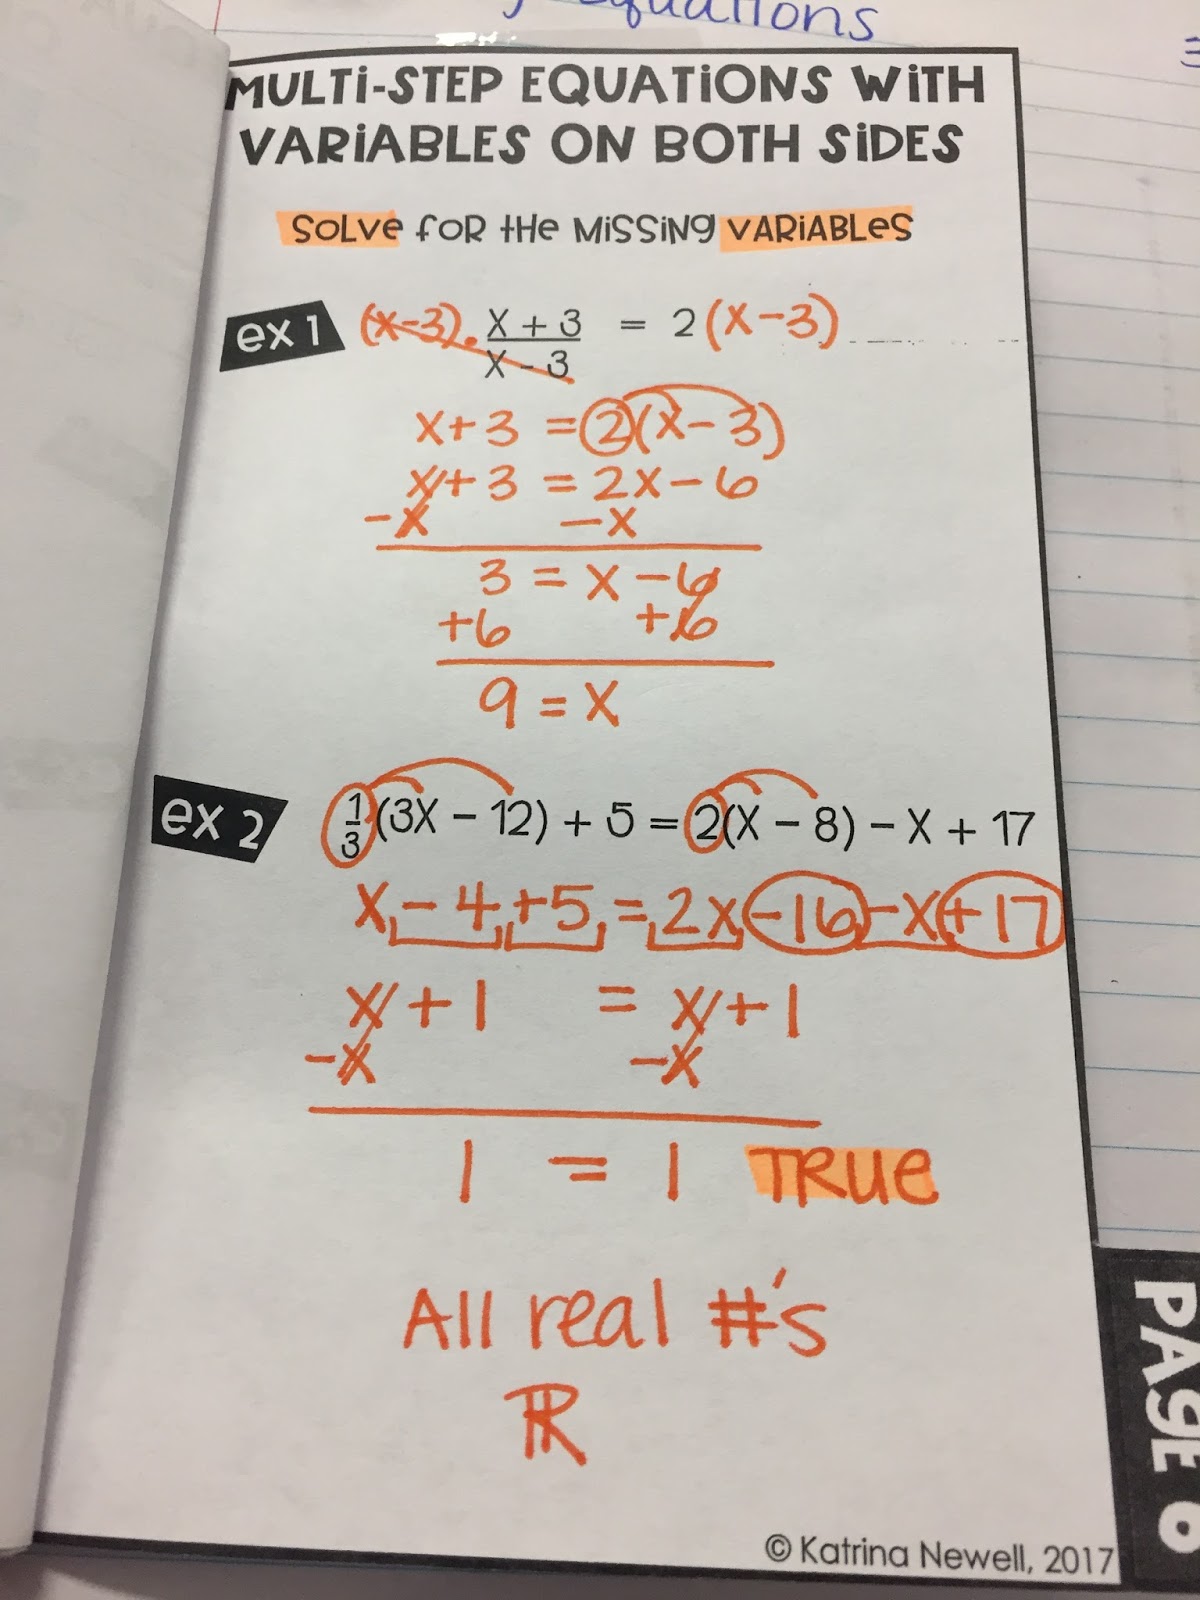 equations
MULTi-STEP EQUATiONS WiTH
VARiABLES ON BOTH SiDES
SOLVe foR tHe MiSSiNg VARiABLeS
ex 1 (x-3) · X + 3 / X - 3 = 2 (x-3)
x+3 = 2(x-3)
x+3 = 2x-6
-x -x
3 = x-6
+6 +6
9 = x
ex 2 1/3 (3X - 12) + 5 = 2(X - 8) - X + 17
x-4+5 = 2x-16-x+17
x+1 = x+1
-x -x
1 = 1 TRUe
All real #'s
ℝ
© Katrina Newell, 2017
PAGE 6